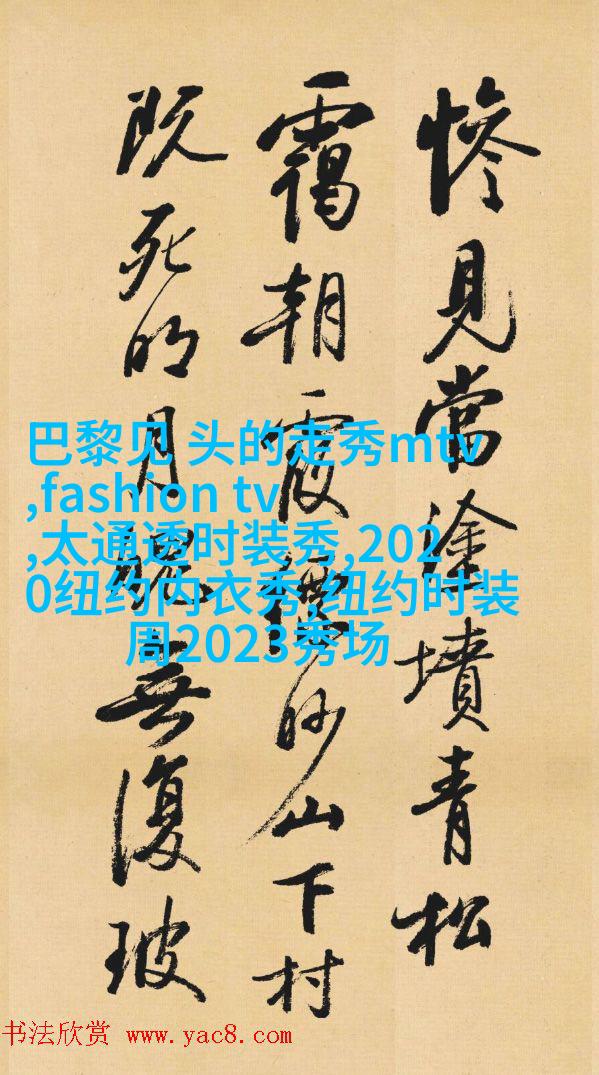 惨見當塗墳青松
靄朝霞縹眇山下村
既死明月魄無復玻
巴黎见 头的走秀mtv
,fashion tv
,太通透时装秀,202
0纽约内衣秀,纽约时装
周2023秀场
书法欣赏 www.yac8.com